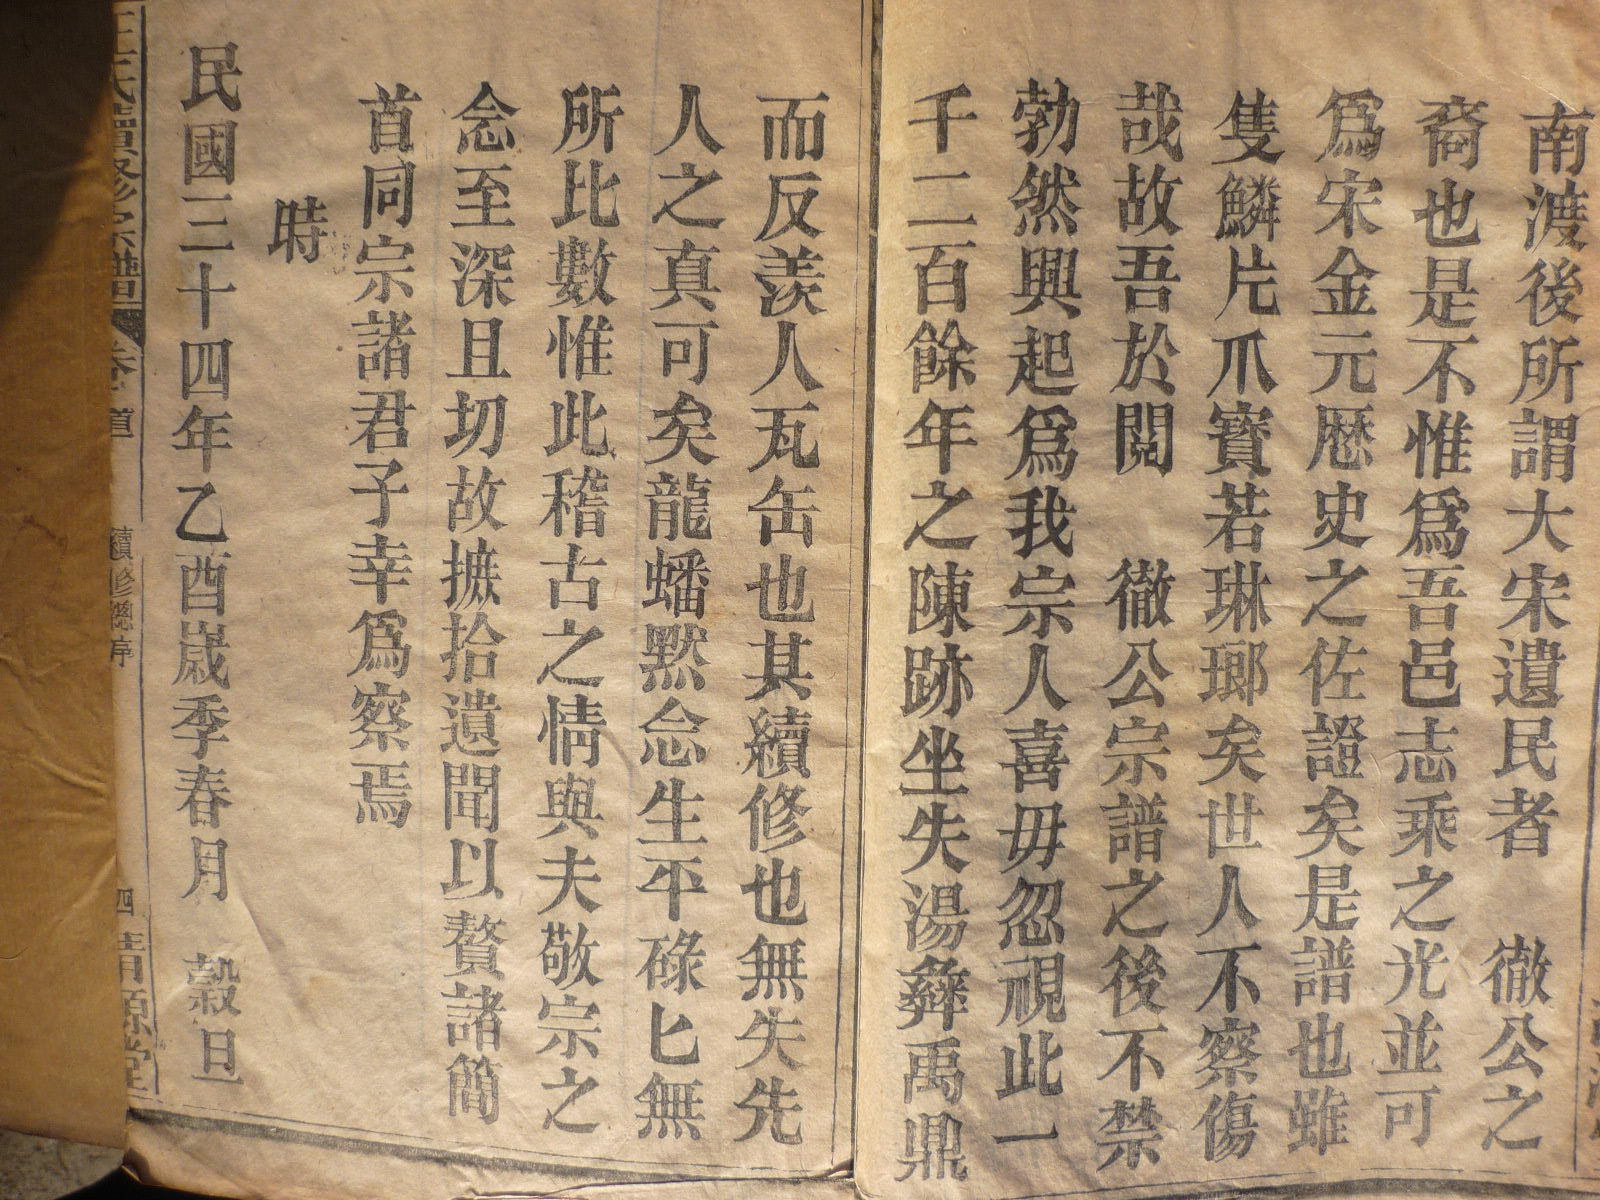 南渡後所謂大宋遺民者　徹公之
裔也是不惟爲吾邑志乘之光並可
爲宋金元歷史之佐證矣是譜也雖
隻鱗片爪寶若琳瑯矣世人不察傷
哉故吾於閱　徹公宗譜之後不禁
勃然興起爲我宗人喜毋忽視此一
千二百餘年之陳跡坐失湯彝禹鼎
而反羨人瓦缶也其續修也無失先
人之真可矣龍蟠默念生平碌匕無
所比數惟此稽古之情與夫敬宗之
念至深且切故摭拾遺聞以贅諸簡
首同宗諸君子幸爲察焉
時
民國三十四年乙酉歲季春月　穀旦
王氏續修宗譜　道　續修總序　四　青源堂